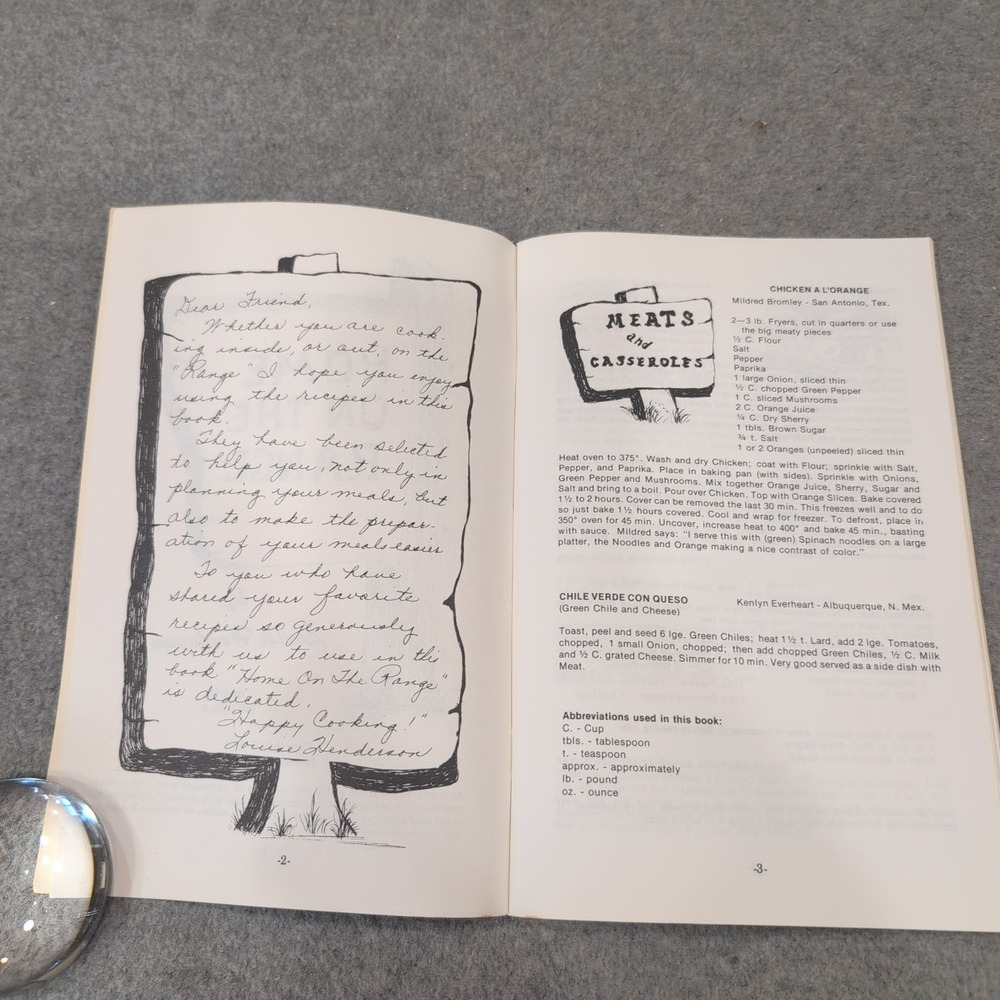 Dear Friend,
Whether you are cook-
ing inside, or out, on the
"Range" I hope you enjoy
using the recipes in this
book.
They have been selected
to help you, not only in
planning your meals, but
also to make the prepar-
ation of your meals easier
To you who have
shared your favorite
recipes so generously
with us to use in this
book "Home On The Range"
is dedicated.
"Happy Cooking!"
Louise Henderson
-2-
MEATS
and
CASSEROLES
CHICKEN A L'ORANGE
Mildred Bromley - San Antonio, Tex.
2—3 lb. Fryers, cut in quarters or use
the big meaty pieces
½ C. Flour
Salt
Pepper
Paprika
1 large Onion, sliced thin
½ C. chopped Green Pepper
1 C. sliced Mushrooms
2 C. Orange Juice
¼ C. Dry Sherry
1 tbls. Brown Sugar
¾ t. Salt
1 or 2 Oranges (unpeeled) sliced thin
Heat oven to 375°. Wash and dry Chicken; coat with Flour; sprinkle with Salt,
Pepper, and Paprika. Place in baking pan (with sides). Sprinkle with Onions,
Green Pepper and Mushrooms. Mix together Orange Juice, Sherry, Sugar and
Salt and bring to a boil. Pour over Chicken. Top with Orange Slices. Bake covered
1½ to 2 hours. Cover can be removed the last 30 min. This freezes well and to do
so just bake 1½ hours covered. Cool and wrap for freezer. To defrost, place in
350° oven for 45 min. Uncover, increase heat to 400° and bake 45 min., basting
with sauce. Mildred says: "I serve this with (green) Spinach noodles on a large
platter, the Noodles and Orange making a nice contrast of color."
CHILE VERDE CON QUESO
(Green Chile and Cheese)
Kenlyn Everheart - Albuquerque, N. Mex.
Toast, peel and seed 6 lge. Green Chiles; heat 1½ t. Lard, add 2 lge. Tomatoes,
chopped, 1 small Onion, chopped; then add chopped Green Chiles, ½ C. Milk
and ½ C. grated Cheese. Simmer for 10 min. Very good served as a side dish with
Meat.
Abbreviations used in this book:
C. - Cup
tbls. - tablespoon
t. - teaspoon
approx. - approximately
lb. - pound
oz. - ounce
-3-